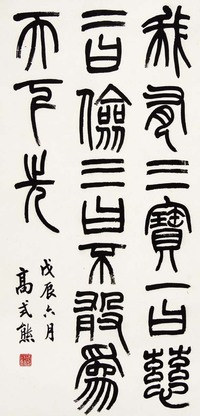 我有三寶一曰慈
二曰儉三曰不敢為
天下先
戊辰六月
高式熊